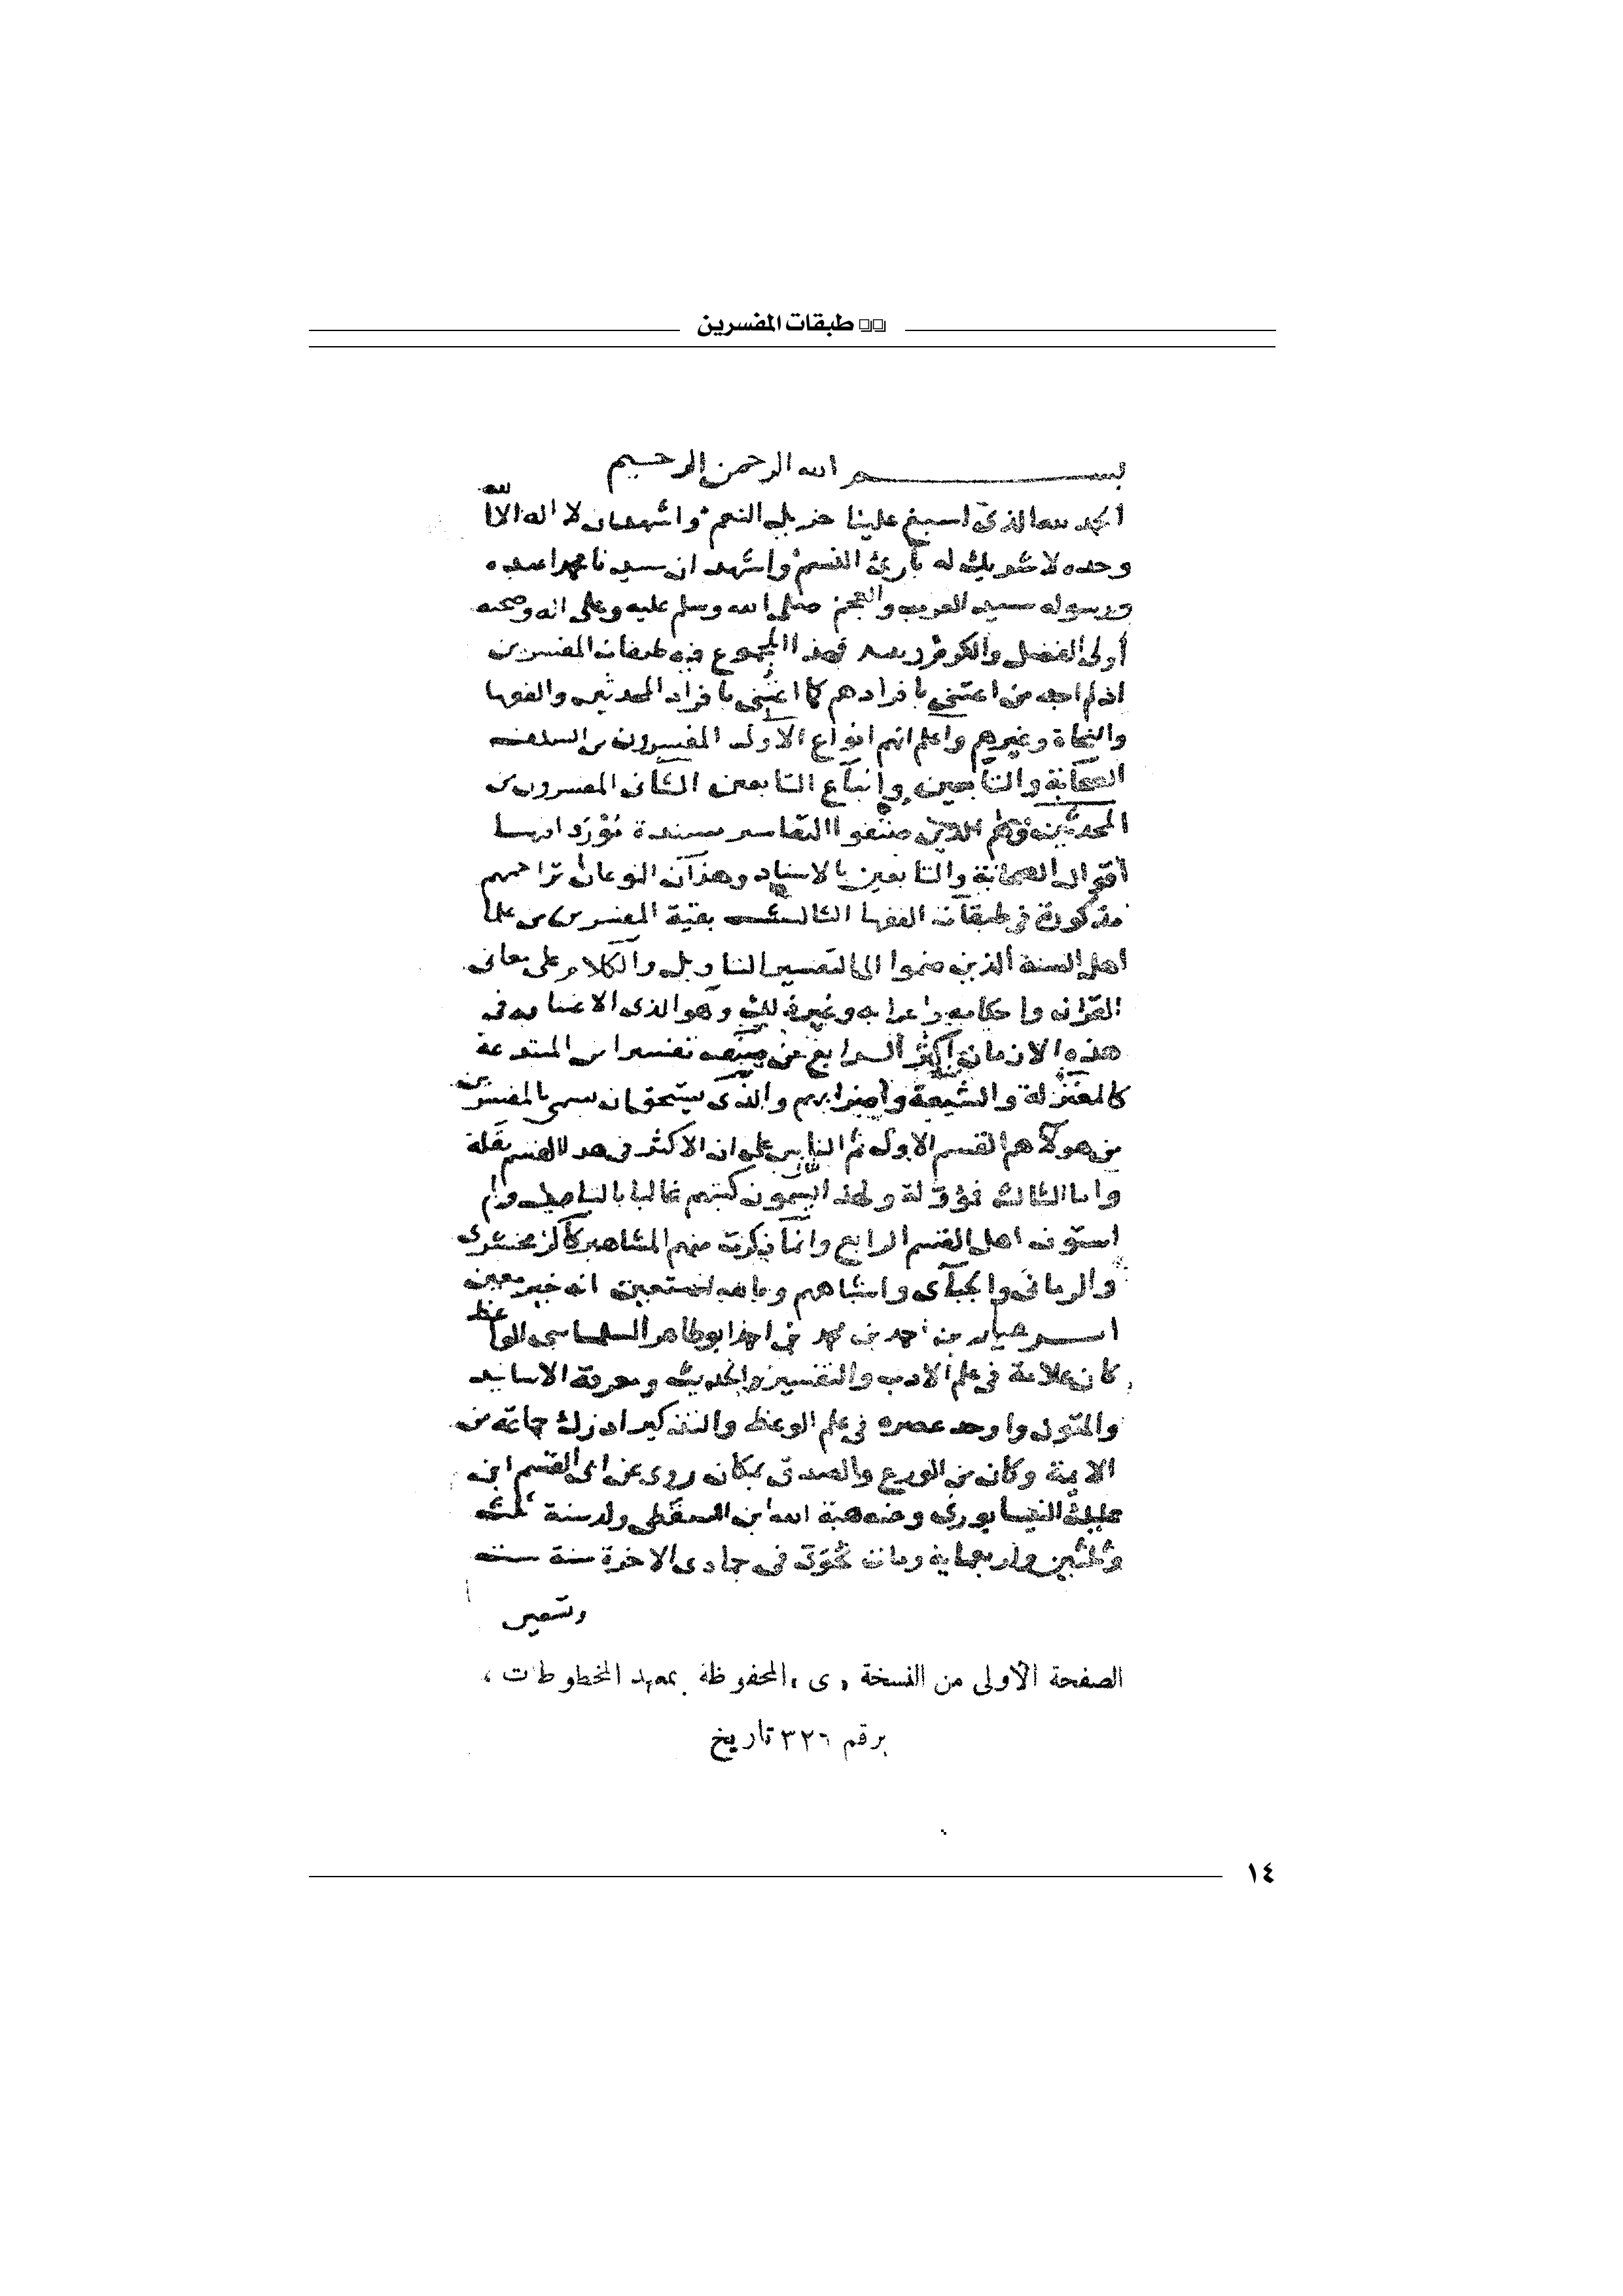 طبقات المفسرين
بسم الله الرحمن الرحيم
الحمد لله الذى اسبغ علينا جزيل النعم واشهد ان لا اله الا الله
وحده لا شريك له بارئ النسم واشهد ان سيدنا محمدا عبده
ورسوله سيد العرب والعجم صلى الله وسلم عليه وعلى اله وصحبه
أولى الفضل والكرم وبعد فهذا المجموع فيه طبقات المفسرين
اذ لم اجد من اعتنى بافرادهم كما اعتنى بافراد المحدثين والفقها
والنحاة وغيرهم واعلم انهم انواع الاول المفسرون من السلف
الصحابة والتابعين واتباع التابعين الثانى المفسرون من
المحدثين وهم الذين صنفوا التفاسير مسندة مورد افيها
أقوال الصحابة والتابعين بالاسناد وهذان النوعان تراجمهم
مذكورة فى طبقات الفقها الثالث بقية المفسرين من علما
اهل السنة الذين ضموا الى التفسير التاويل والكلام على معانى
القران واحكامه واعرابه وغير ذلك وهو الذى الاعتنا به فى
هذه الازمان اكثر الرابع من صنف تفسيرا من المبتدعة
كالمعتزلة والشيعة واضرابهم والذى يستحق ان يسمى بالمفسرين
من هولاهم القسم الاول ثم الثانى على ان الاكثر فى هذا القسم نقلة
واما الثالث فمؤولة ولهذا يسمون كتبهم غالبا بالتاويل ولم
استوف اهل القسم الرابع وانما ذكرت منهم المشاهير كالزمخشرى
والرمانى والجبآى واشباههم وبالله استعين انه خير معين
احمد بن محمد بن احمد ابو طاهر السلماسى الواعظ
كان علامة فى علم الادب والتفسير والحديث ومعرفة الاسانيد
والمتون واوحد عصره فى علم الوعظ والتذكير ادرك جماعة من
الايمة وكان من الورع والصدق بمكان روى عن ابى القسم ابن
عليك النيسابورى وعنه هبة الله بن السقطى ولد سنة ثلث
وثلثين واربعماية ومات بخوى فى جمادى الاخرة سنة ست
وتسعين
الصفحة الأولى من النسخة « ى » المحفوظة بمعهد المخطوطات ،
برقم ٣٢٦ تاريخ
١٤